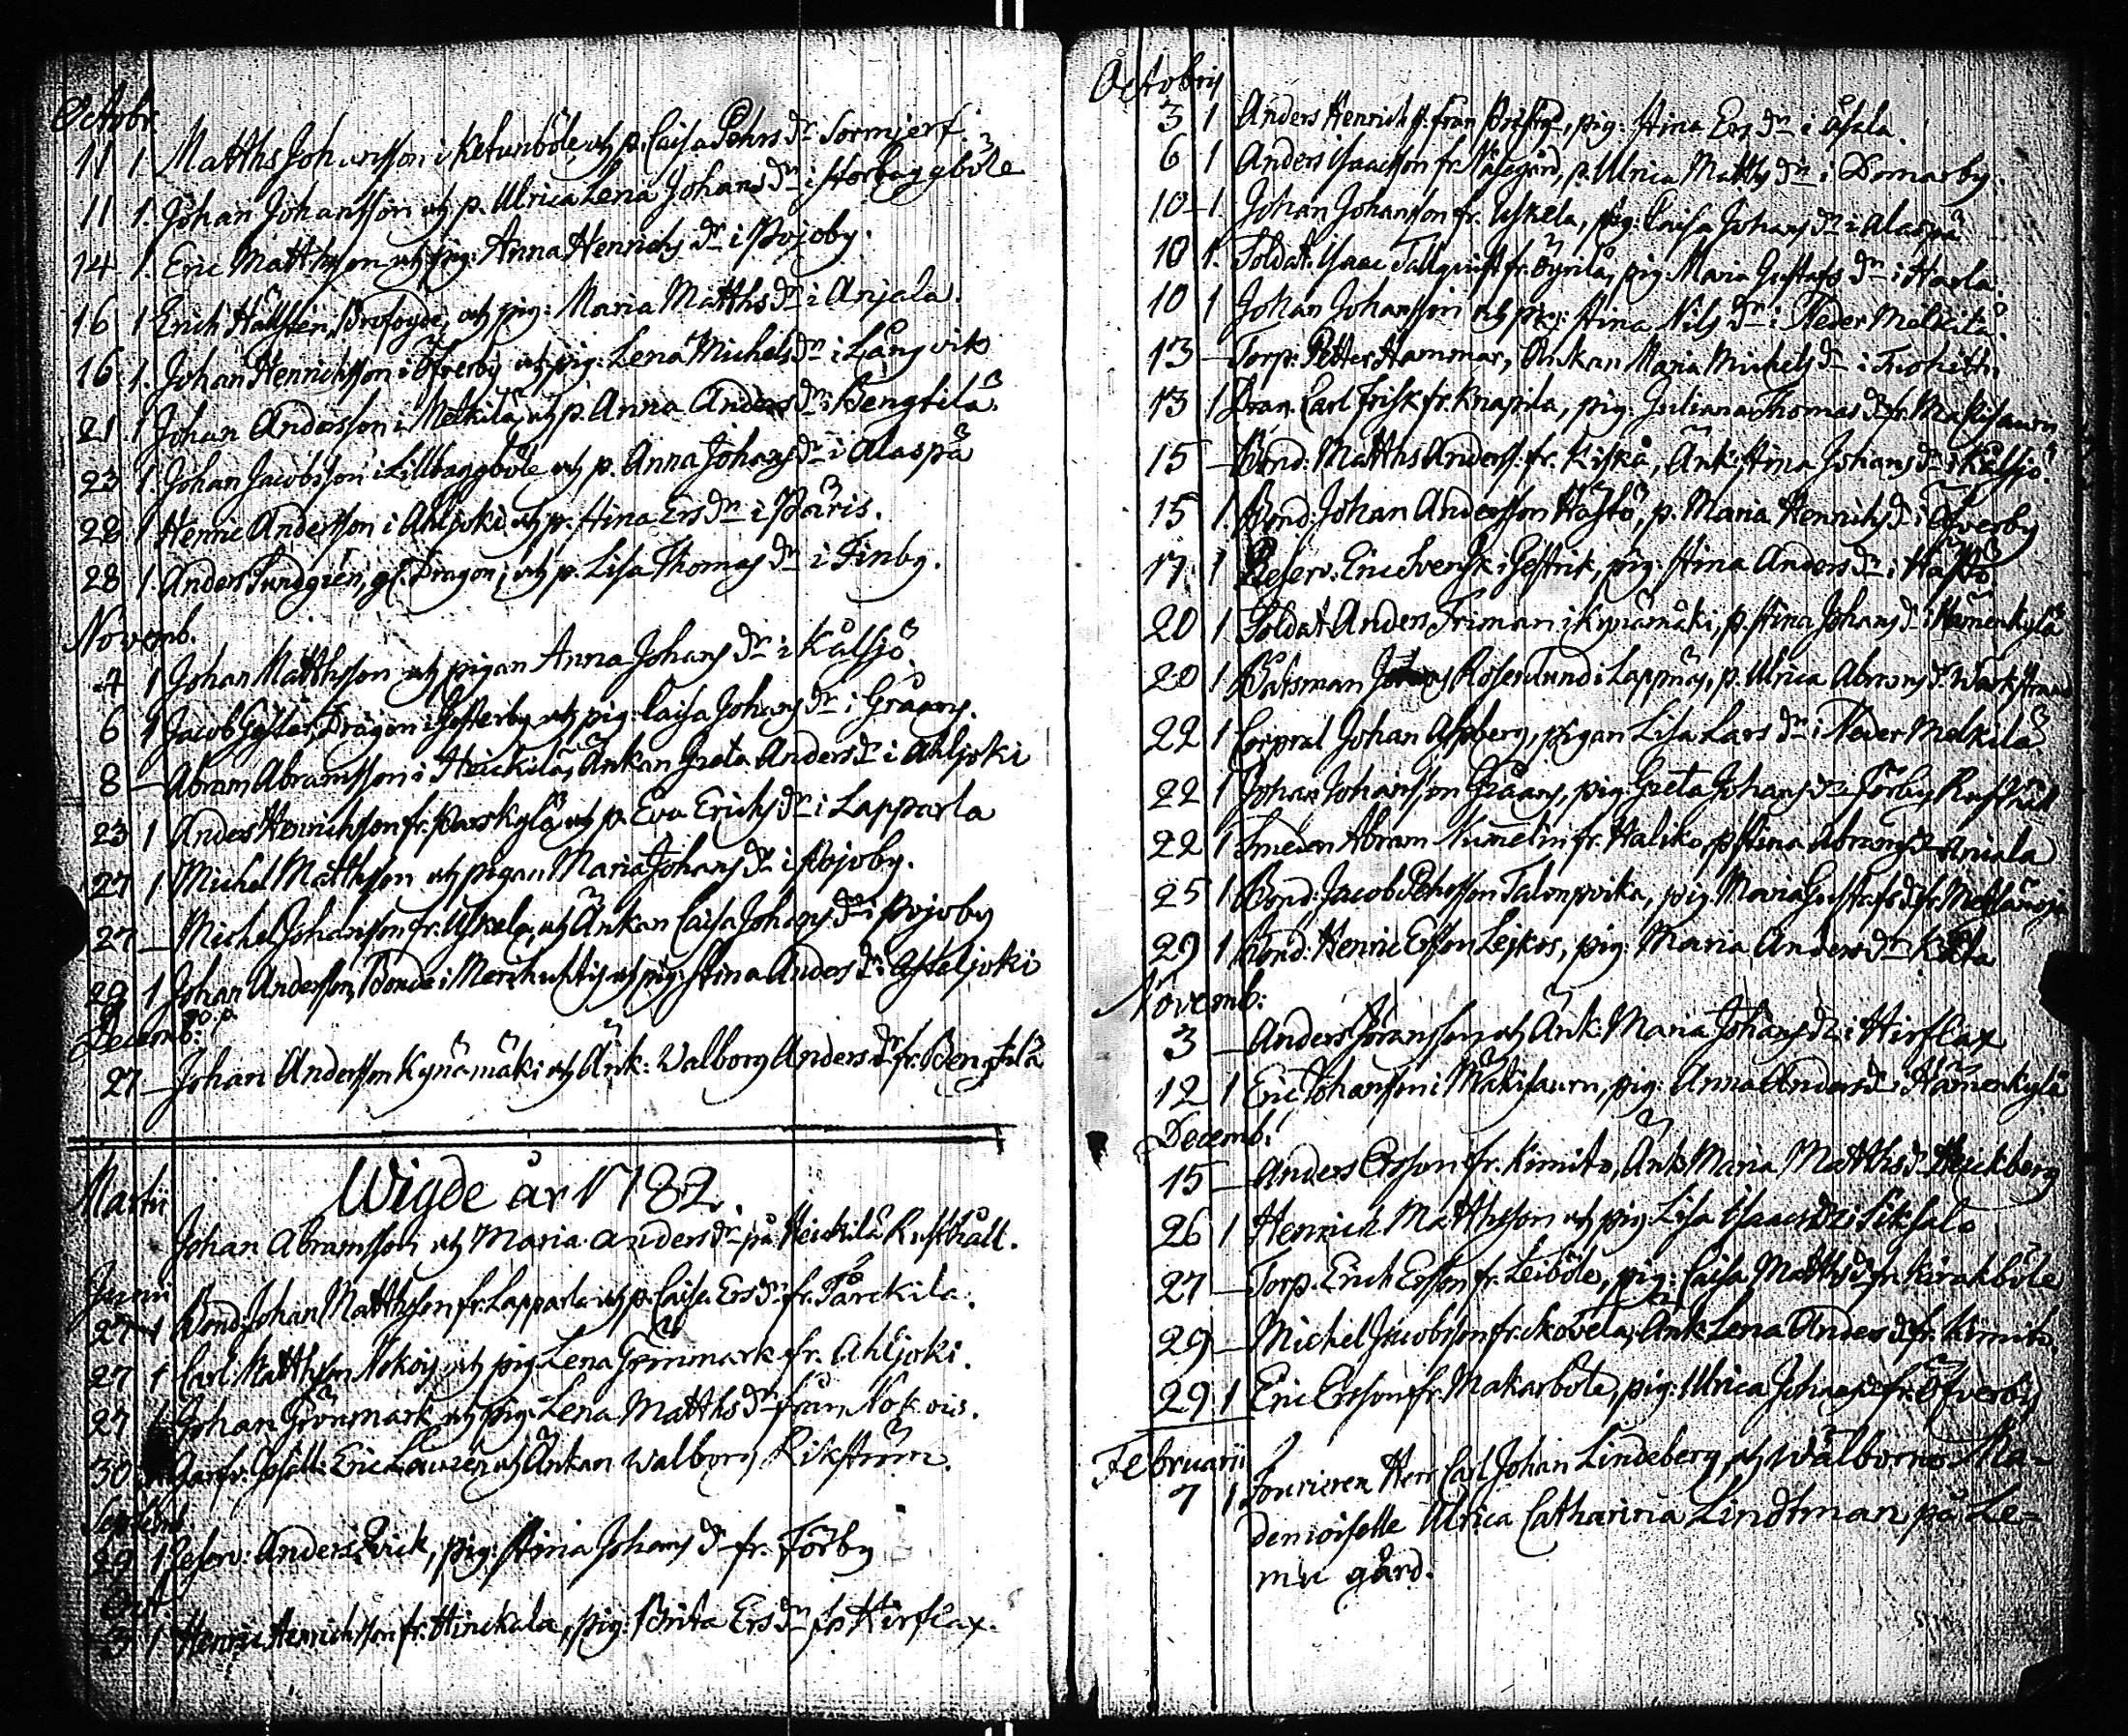 Octobr.
11 1 Matths Johansson i Ketunböle och p. Caisa Pehrs dr Sormjerf.
11 1. Johan Johansson och p. Ulrica Lena Johans dr i Storbaggböle
14 1. Eric Matthsson och pig: Anna Henrichs dr i Pojoby.
16 1 Erich Hällsten, Brofogde, och pig: Maria Matths dr i Anjala.
16 1. Johan Henrichsson i Öfverby och pig: Lena Michels dr i Långvik
21. 1 Johan Andersson i Melkilä och p. Anna Anders dr i Bengtilä.
23 1. Johan Jacobsson i Lillbaggböle och p. Anna Johans dr i Alaspä
28 1 Henric Andersson i Ahljoki och p. Stina Ers dr i Päris.
28 1. Anders Sundgrén, gl. Dragon, och p. Lisa Thomas dr i Finby.
Novemb.
4 1 Johan Matthsson och pigan Anna Johans dr i Kålsjö.
6 1 Jacob Gester, Dragon i Gesterby och pig: Caisa Johans dr i Gråans.
8 — Abram Abramsson i Heickilä, Änkan Greta Anders dr i Ahljoki
23 1 Anders Henrichsson fr. Parskylä och p. Eva Erichs dr i Lapparla
27 1 Michel Matthsson och pigan Maria Johans dr i Pojoby.
27 — Michel Johansson fr. Uskela, och Änkan Caisa Johans dr i Pojoby
29 1 Johan Andersson, Bonde i och pig: Stina Anders dr Asteljoki
Decemb:
27 — Johan Andersson Kynämäki och Änk: Walborg Anders dr fr. Bengtilä
Wigde år 1782.
Martii
Johan Abramsson och Maria Anders dr på Heickilä Rusthåll.
Junii
27 1 Bond: Johan Matthsson fr. Lapparla och p. Caisa Ers dr fr. Tärckila.
27 1 Carl Matthsson Nokois och pig Lena Grönmark fr. Ahljoki.
27 1 Johan Grönmark och pig: Lena Matths dr från Nokois.
30 Eric och Änkan Walborg Rikström.
Septemb.
29 1 Reserv: Anders Qvick, pig: Stina Johans dr fr. Förby
Oct.
3 1 Henric Henrichsson fr. Hinckala, pig: Brita Ers dr fr Hirflax.
Octobris
3 1 Anders Henrichs. från, pig: Stina Ers dr i Åsala.
6 1 Anders Isaacsson fr. Näsegård, p. Ulrica Matths dr i Domarby.
10 — 1. Johan Johansson fr. Uskela, pig: Caisa Johans dr i Alaspä
10 1. Soldat. Isaac Tallqvist fr. Öyrilä, pig: Maria Gustafs dr i Harla.
10 1 Johan Johansson och pig: Stina Nils dr i Neder Melkilä
13 — Torp: Petter Hammar, Änkan Maria Michels dr i
13 1 Drag. Carl Frisk fr. Knapila, pig: Juliana Thomas dr fr. Makisauru
15 — Bond: Matths Anderss: fr. Kiskå, Änk: Stina Johans dr i Kålsjö.
15 1. Bond: Johan Andersson Hästö, p. Maria Henrichs dr i Öfverby
17 1 Reserv. Eric Svensk i Gestrik, pig: Stina Anders dr i Hästö
20 1 Soldat Anders Friman i Kynämäki, p. Stina Johans dr i Hämenkylä
20 1 Båtsman Johans Rosenlund i Lappnäs, p. Ulrica Abrams dr Warkstrand
22 1 Corpral Johan Aspberg, pigan Lisa Lars dr i Neder Melkilä
22 1 Johan Johansson Gråans, pig: Greta Johans dr i Förby Rusthåll
22 1 Smeden Abram Numelin fr. Haliko, p Stina Abrams dr Aniala
25 1 Bond: Jacob Pehrsson Talonpoika, pig. Maria Gustafs dr fr.
29 1 Bond: Henric Ersson Leskos, pig: Maria Anders dr
Novemb:
3 — Anders Göransson och Änk: Maria Johans dr i Hirflax
12 1 Eric Johansson i Mäkisauru, pig: Anna Anders dr i Hämenkylä
Decemb:
15 — Anders Ersson fr. Kimito, Änk Maria Matths dr Heickberg
26 1 Henrich Matthsson och pig: Lisa Isaacs dr i Siksalo
27 — Torp. Erich Ersson fr. Leiböle, pig: Caisa Matths dr fr. Kirakböle
29 — Michel Jacobsson fr. Skovela, Änk Lena Anders dr fr. Kimito.
29 1 Eric Ersson fr. Makarböle, pig: Ulrica Johans dr fr. Öfverby
Februarii
7 1 Fourieren Herr Carl Johan Lindeberg, och Wälborne Ma-
demoiselle Ulrica Catharina Lindtman på Le-
mu gård.